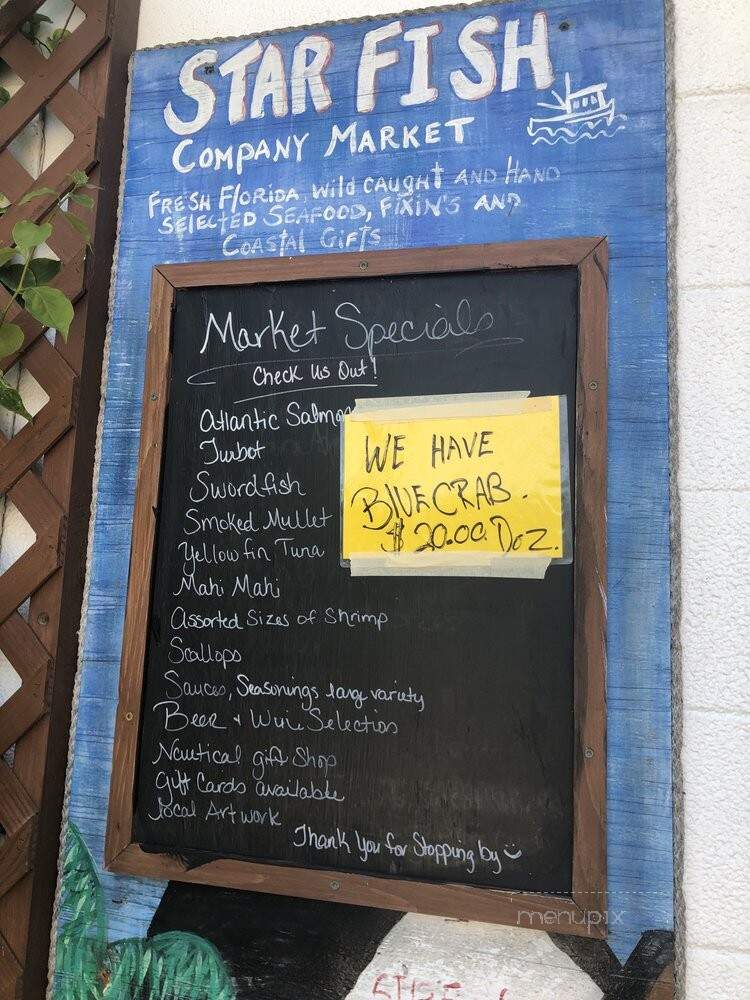 STAR FISH
COMPANY MARKET
FRESH FlORIDA, Wild CAUGHT AND HAND
SELECTED SEAFOOD, FIXIN'S AND
COASTAL GIFTS
Market Specials
Check Us Out!
Atlantic Salmon
Turbot
Swordfish
Smoked Mullet
Yellow fin Tuna
Mahi Mahi
Assorted Sizes of Shrimp
Scallops
Sauces, Seasonings large variety
Beer + Wine Selection
Nautical gift Shop
Gift Cards available
Local Art work
Thank You for Stopping by
WE HAVE
BLUE CRAB.
$20.00. DOZ.
menupix